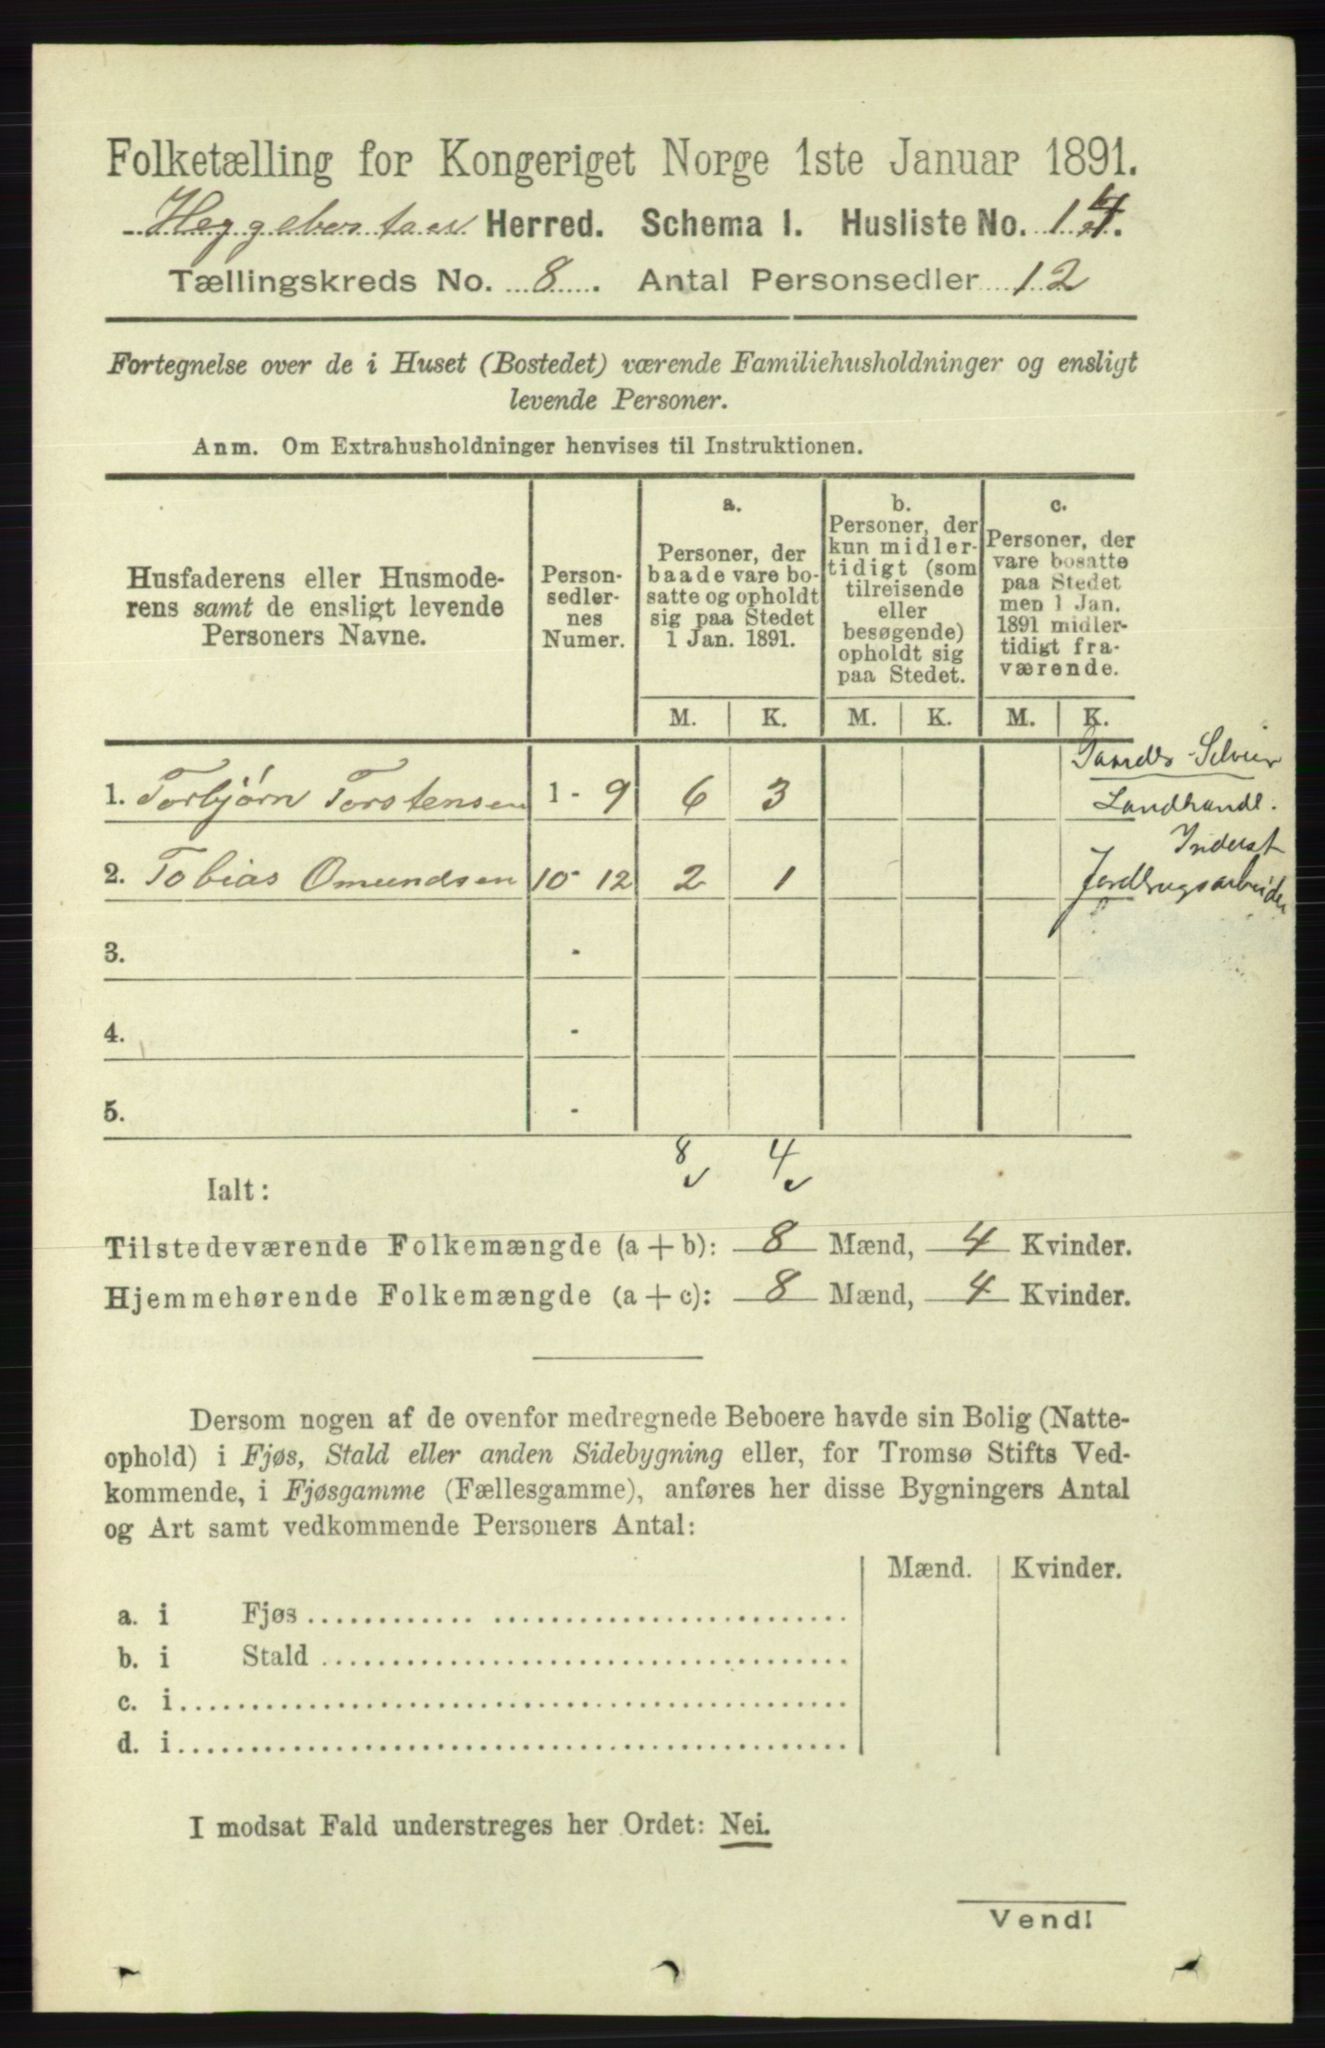 Folketælling for Kongeriget Norge 1ste Januar 1891.
Heggebostad Herred. Schema I. Husliste No. 14.
Tællingskreds No. 8. Antal Personsedler 12
Fortegnelse over de i Huset (Bostedet) værende Familiehusholdninger og ensligt
levende Personer.
Anm. Om Extrahusholdninger henvises til Instruktionen.
Husfaderens eller Husmode-
rens samt de ensligt levende
Personers Navne.
Person-
sedler-
nes
Numer.
a.
Personer, der
baade vare bo-
satte og opholdt
sig paa Stedet
1 Jan. 1891.
b.
Personer, der
kun midler-
tidigt (som
tilreisende
eller
besøgende)
opholdt sig
paa Stedet.
c.
Personer, der
vare bosatte
paa Stedet
men 1 Jan.
1891 midler-
tidigt fra-
værende.
M. K. M. K. M. K.
Gaardbr. Selveier
1. Torbjørn Torstensen 1 - 9 6 3 Landhandl.
Inderst
2. Tobias Omundsen 10 - 12 2 1 Jordbrugsarbeider
3. -
4. -
5. -
8 4
Ialt:
Tilstedeværende Folkemængde (a + b): 8 Mænd, 4 Kvinder.
Hjemmehørende Folkemængde (a + c): 8 Mænd, 4 Kvinder.
Dersom nogen af de ovenfor medregnede Beboere havde sin Bolig (Natte-
ophold) i Fjøs, Stald eller anden Sidebygning eller, for Tromsø Stifts Ved-
kommende, i Fjøsgamme (Fællesgamme), anføres her disse Bygningers Antal
og Art samt vedkommende Personers Antal:
Mænd. Kvinder.
a. i Fjøs
b. i Stald
c. i
d. i
I modsat Fald understreges her Ordet: Nei.
Vend!